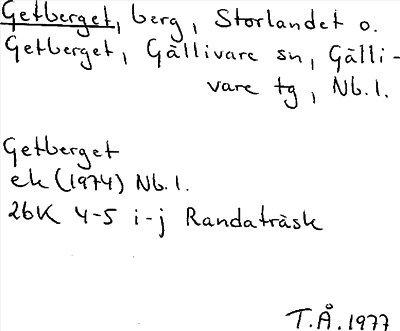 Getberget, berg, Storlandet o.
Getberget, Gällivare sn, Gälli-
vare tg, Nb.l.
Getberget
ek (1974) Nb.l.
26K 4-5 i-j Randaträsk
T.Å. 1977